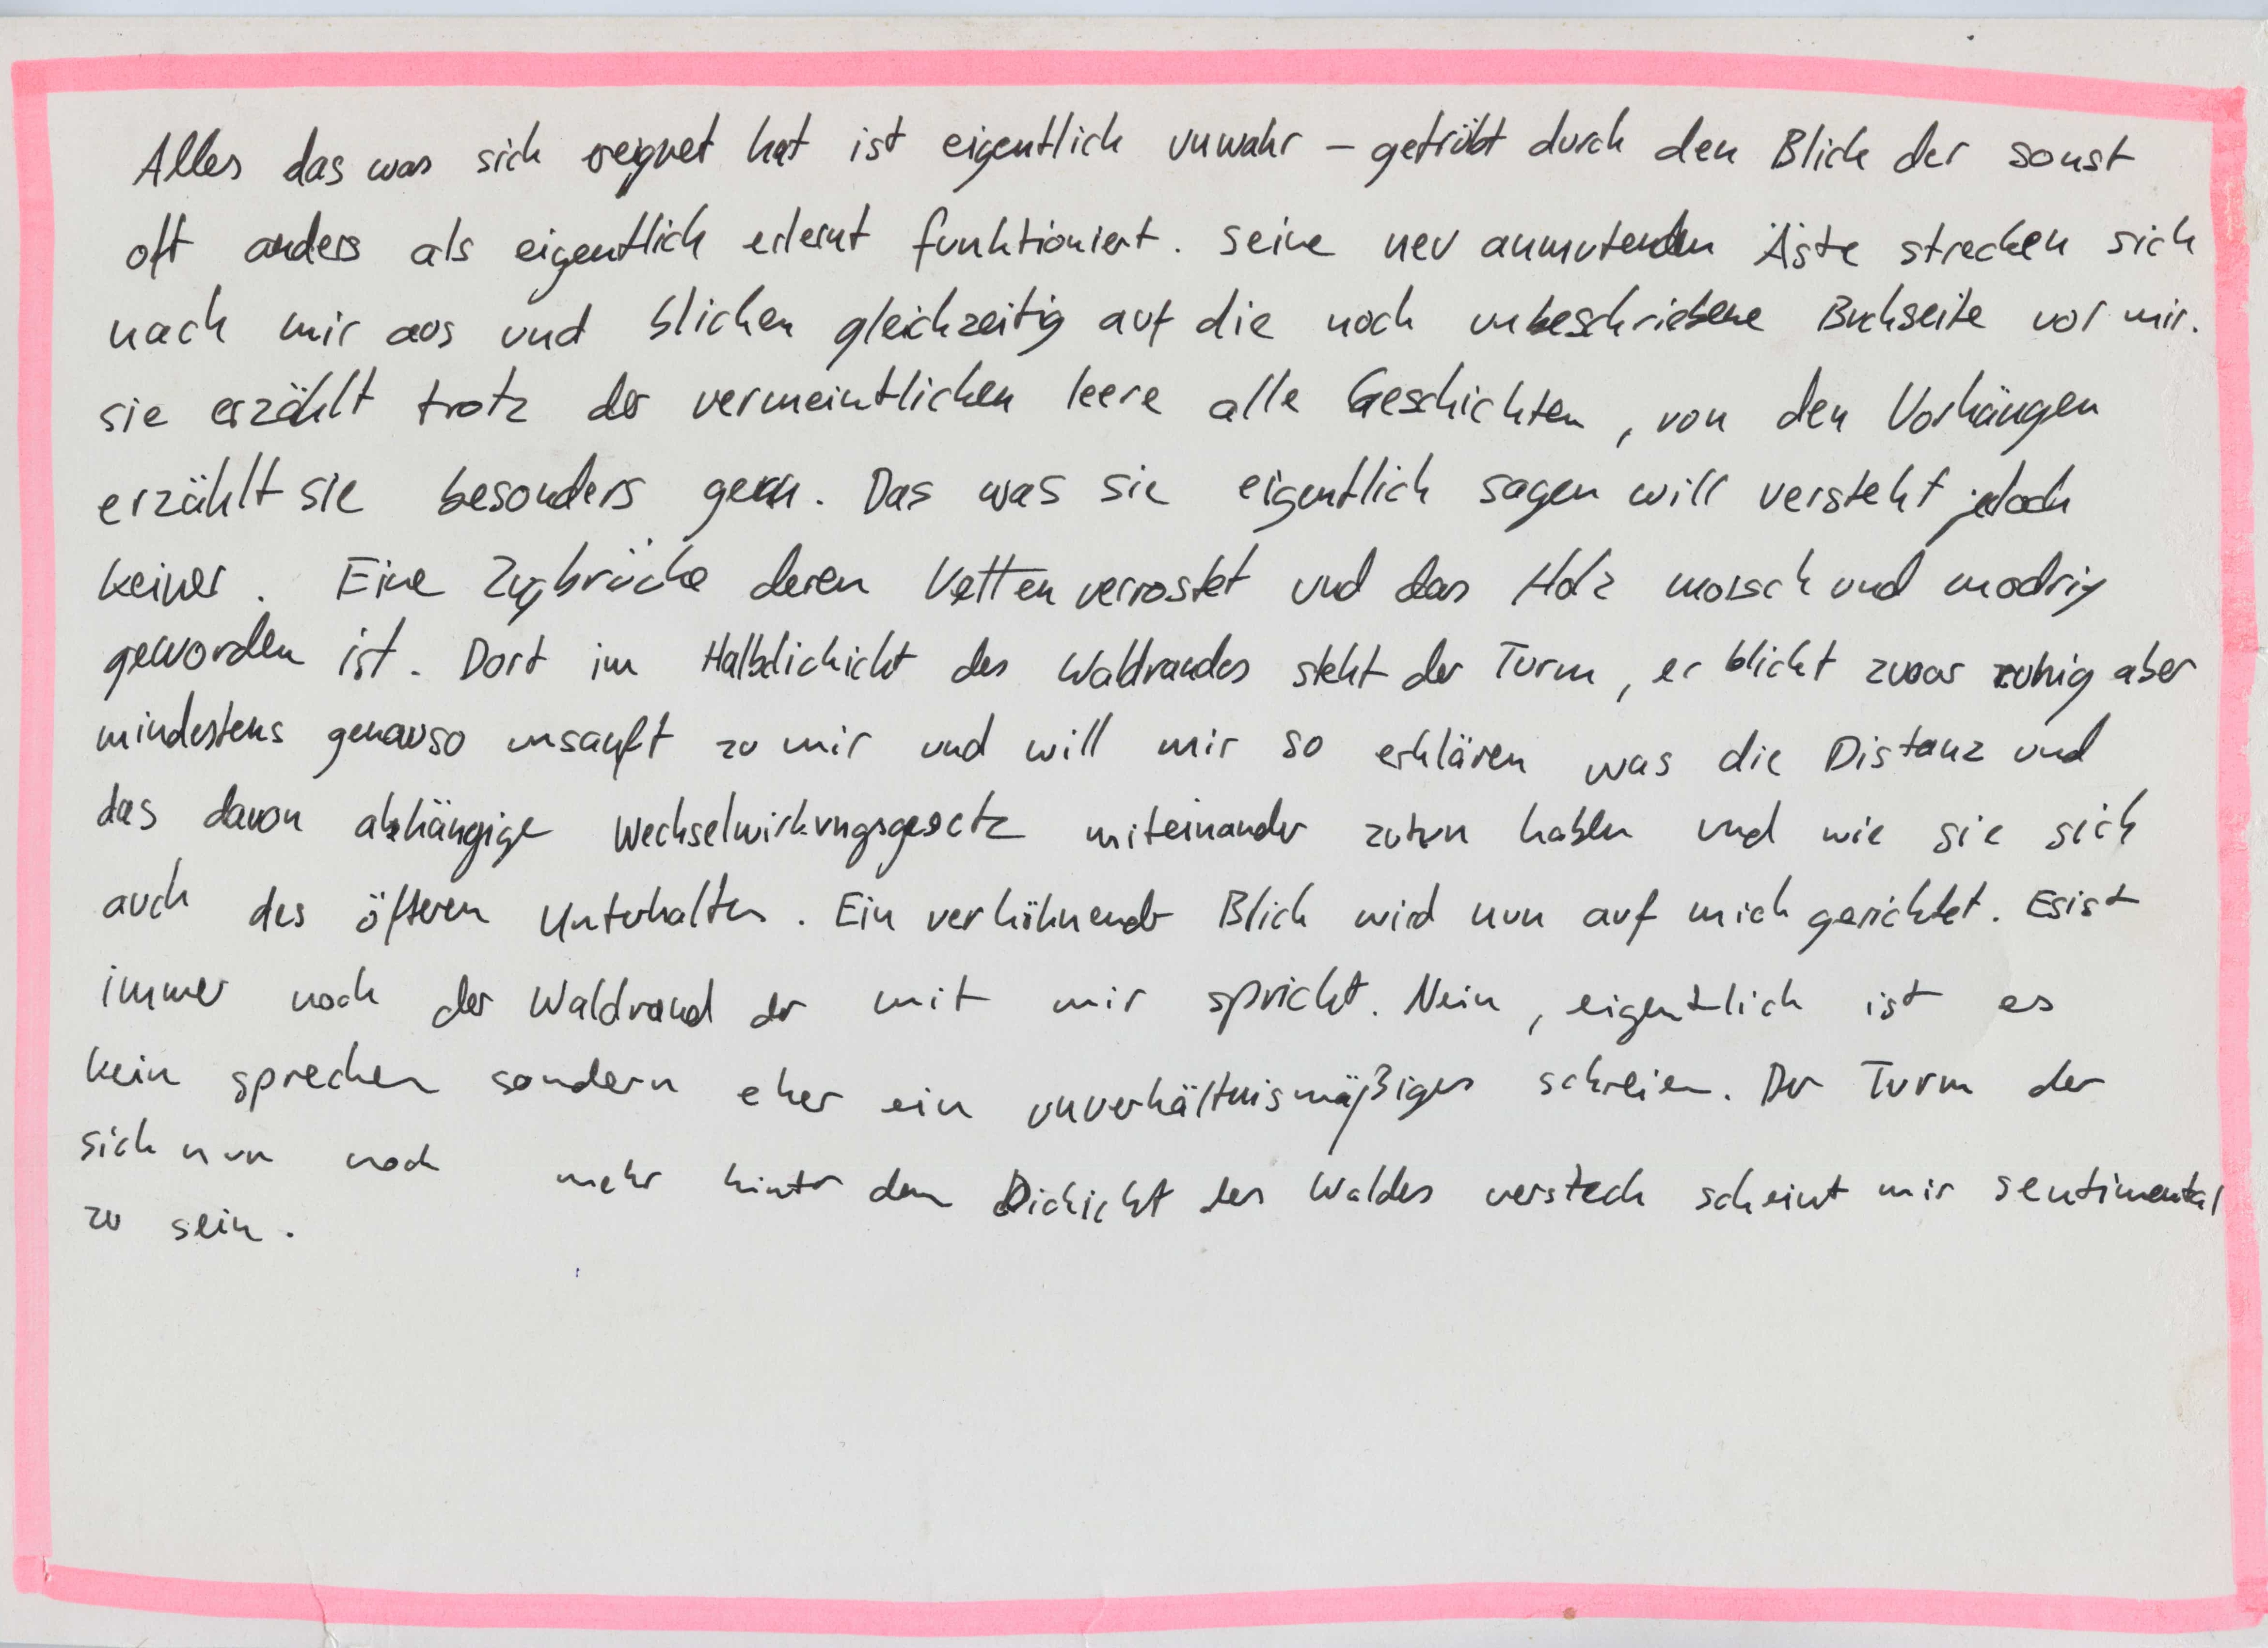 Alles das was sich ereignet hat ist eigentlich unwahr – getrübt durch den Blick der sonst
oft anders als eigentlich erlernt funktioniert. seine neu anmutenden Äste strecken sich
nach mir aus und blicken gleichzeitig auf die noch unbeschriebene Buchseite vor mir.
sie erzählt trotz der vermeintlichen leere alle Geschichten, von den Vorhängen
erzählt sie besonders gern. Das was sie eigentlich sagen will versteht jedoch
keiner. Eine Zugbrücke deren Ketten verrostet und das Holz morsch und modrig
geworden ist. Dort im Halbdichicht des Waldrandes steht der Turm, er blickt zwar ruhig aber
mindestens genauso unsanft zu mir und will mir so erklären was die Distanz und
das davon abhängige Wechselwirkungsgesetz miteinander zutun haben und wie sie sich
auch des öfteren Unterhalten. Ein verhöhnender Blick wird nun auf mich gerichtet. Es ist
immer noch der Waldrand der mit mir spricht. Nein, eigentlich ist es
kein sprechen sondern eher ein unverhältnismäßiges schreien. Der Turm der
sich nun noch mehr hinter dem Dichicht des Waldes versteck scheint mir sentimental
zu sein.